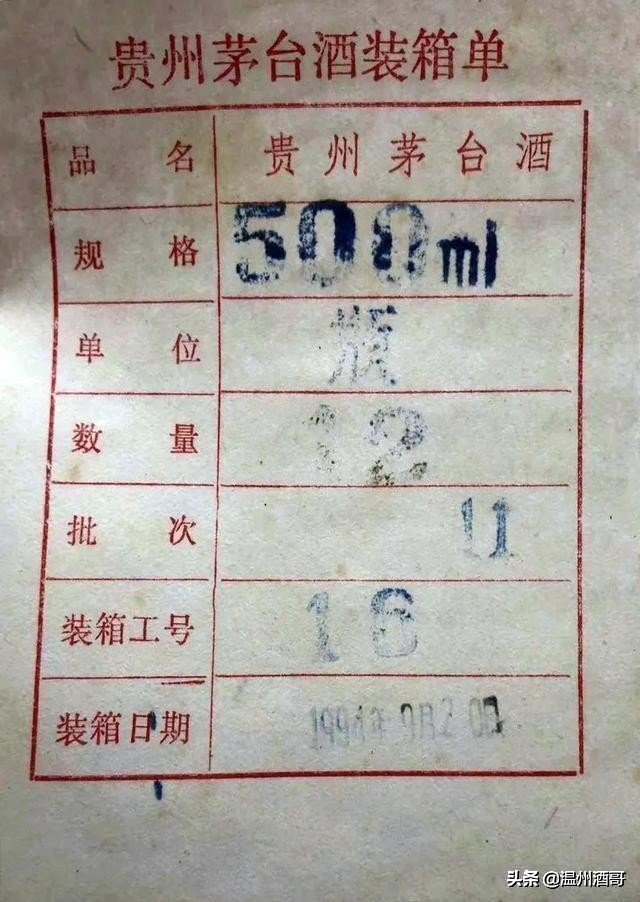 贵州茅台酒装箱单
品名 贵州茅台酒
规格 500ml
单位 瓶
数量 12
批次 11
装箱工号 16
装箱日期 1994年9月20日
头条 @温州酒哥